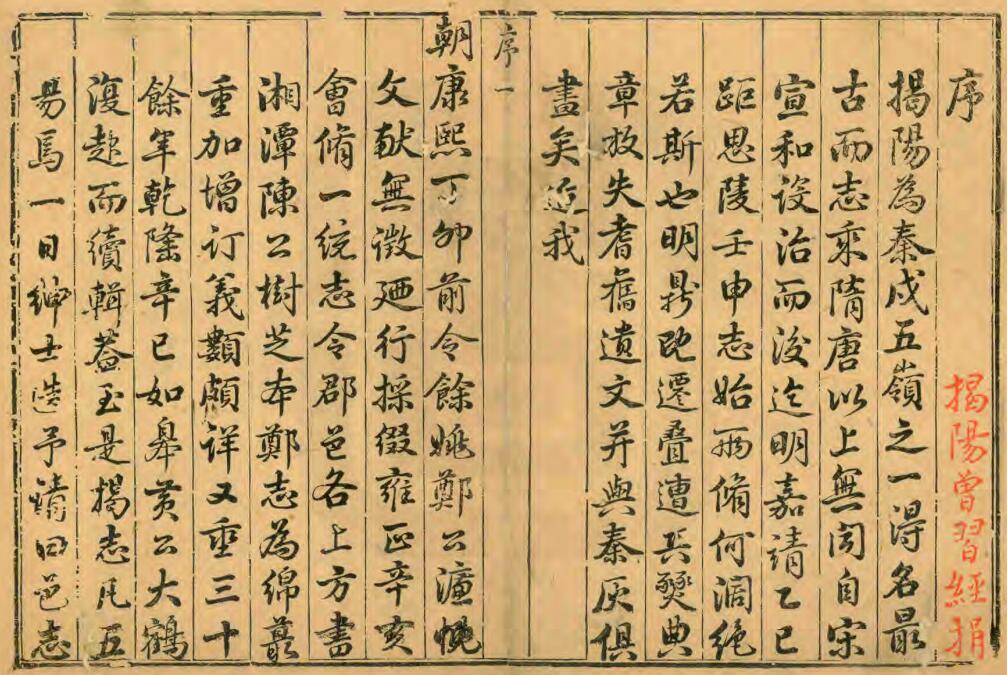 序
揭陽曾習經捐
揭陽為秦戍五嶺之一得名最
古而志乘隋唐以上無聞自宋
宣和設治而後迄明嘉靖乙巳
距思陵壬申志始兩脩何凋絶
若斯也明鼎既遷疊遭兵燹典
章放失耆舊遺文并與秦灰俱
盡矣迨我
序一
朝康熙丁卯前令餘姚鄭公濂幌
文献無徵廼行採缀雍正辛亥
會脩一統志令郡邑各上方書
湘潭陳公樹芝本鄭志為綿蕞
重加增订義類頗详又垂三十
餘年乾隆辛巳如皋黄公大鶴
復起而續輯蓋至是揭志凡五
易馬一日紳士造予請曰邑志